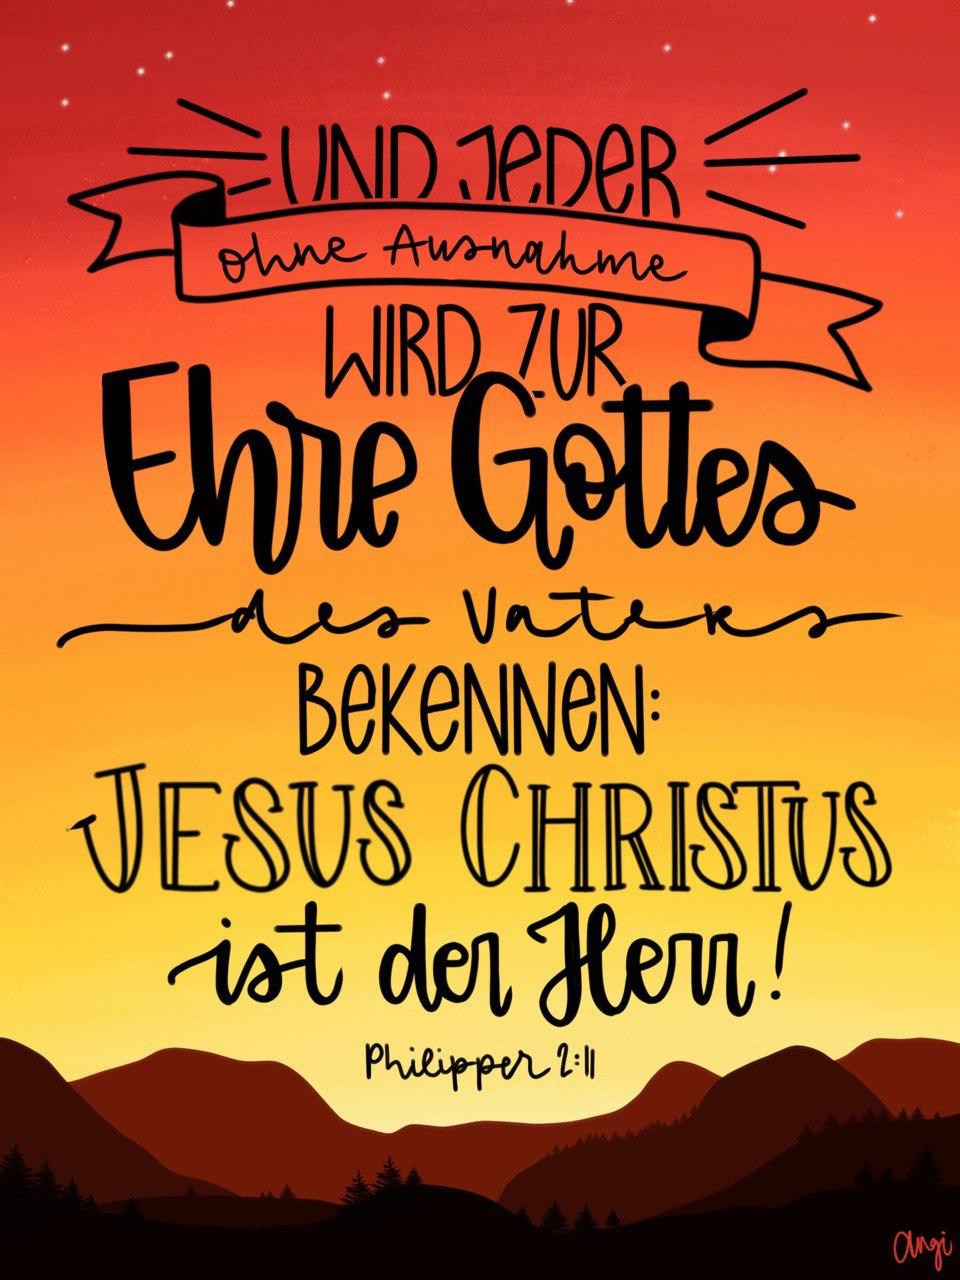 UND JEDER
ohne Ausnahme
WIRD ZUR
Ehre Gottes
des Vaters
BEKENNEN:
JESUS CHRISTUS
ist der Herr!
Philipper 2:11
Angi